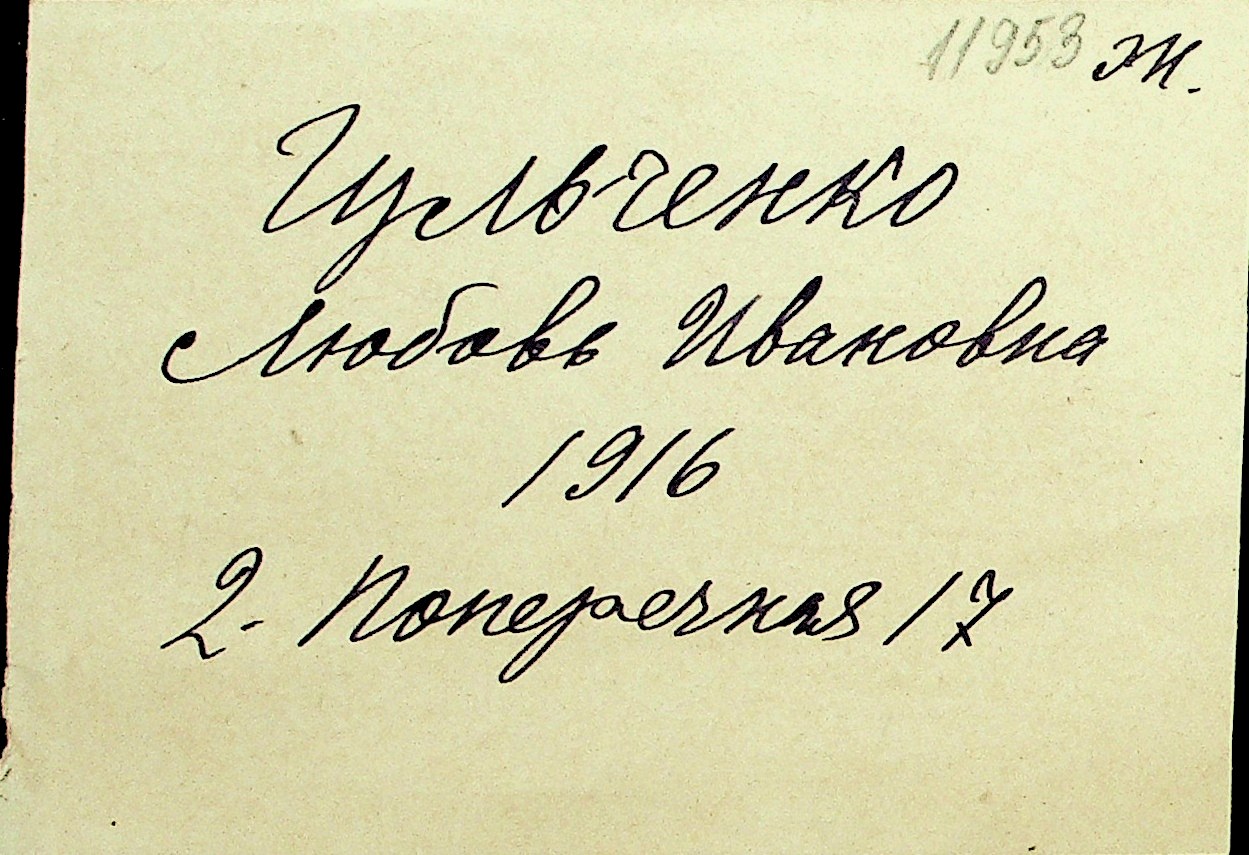 11953 Ж.
Цульченко
Любовь Ивановна
1916
2. Поперечная 17